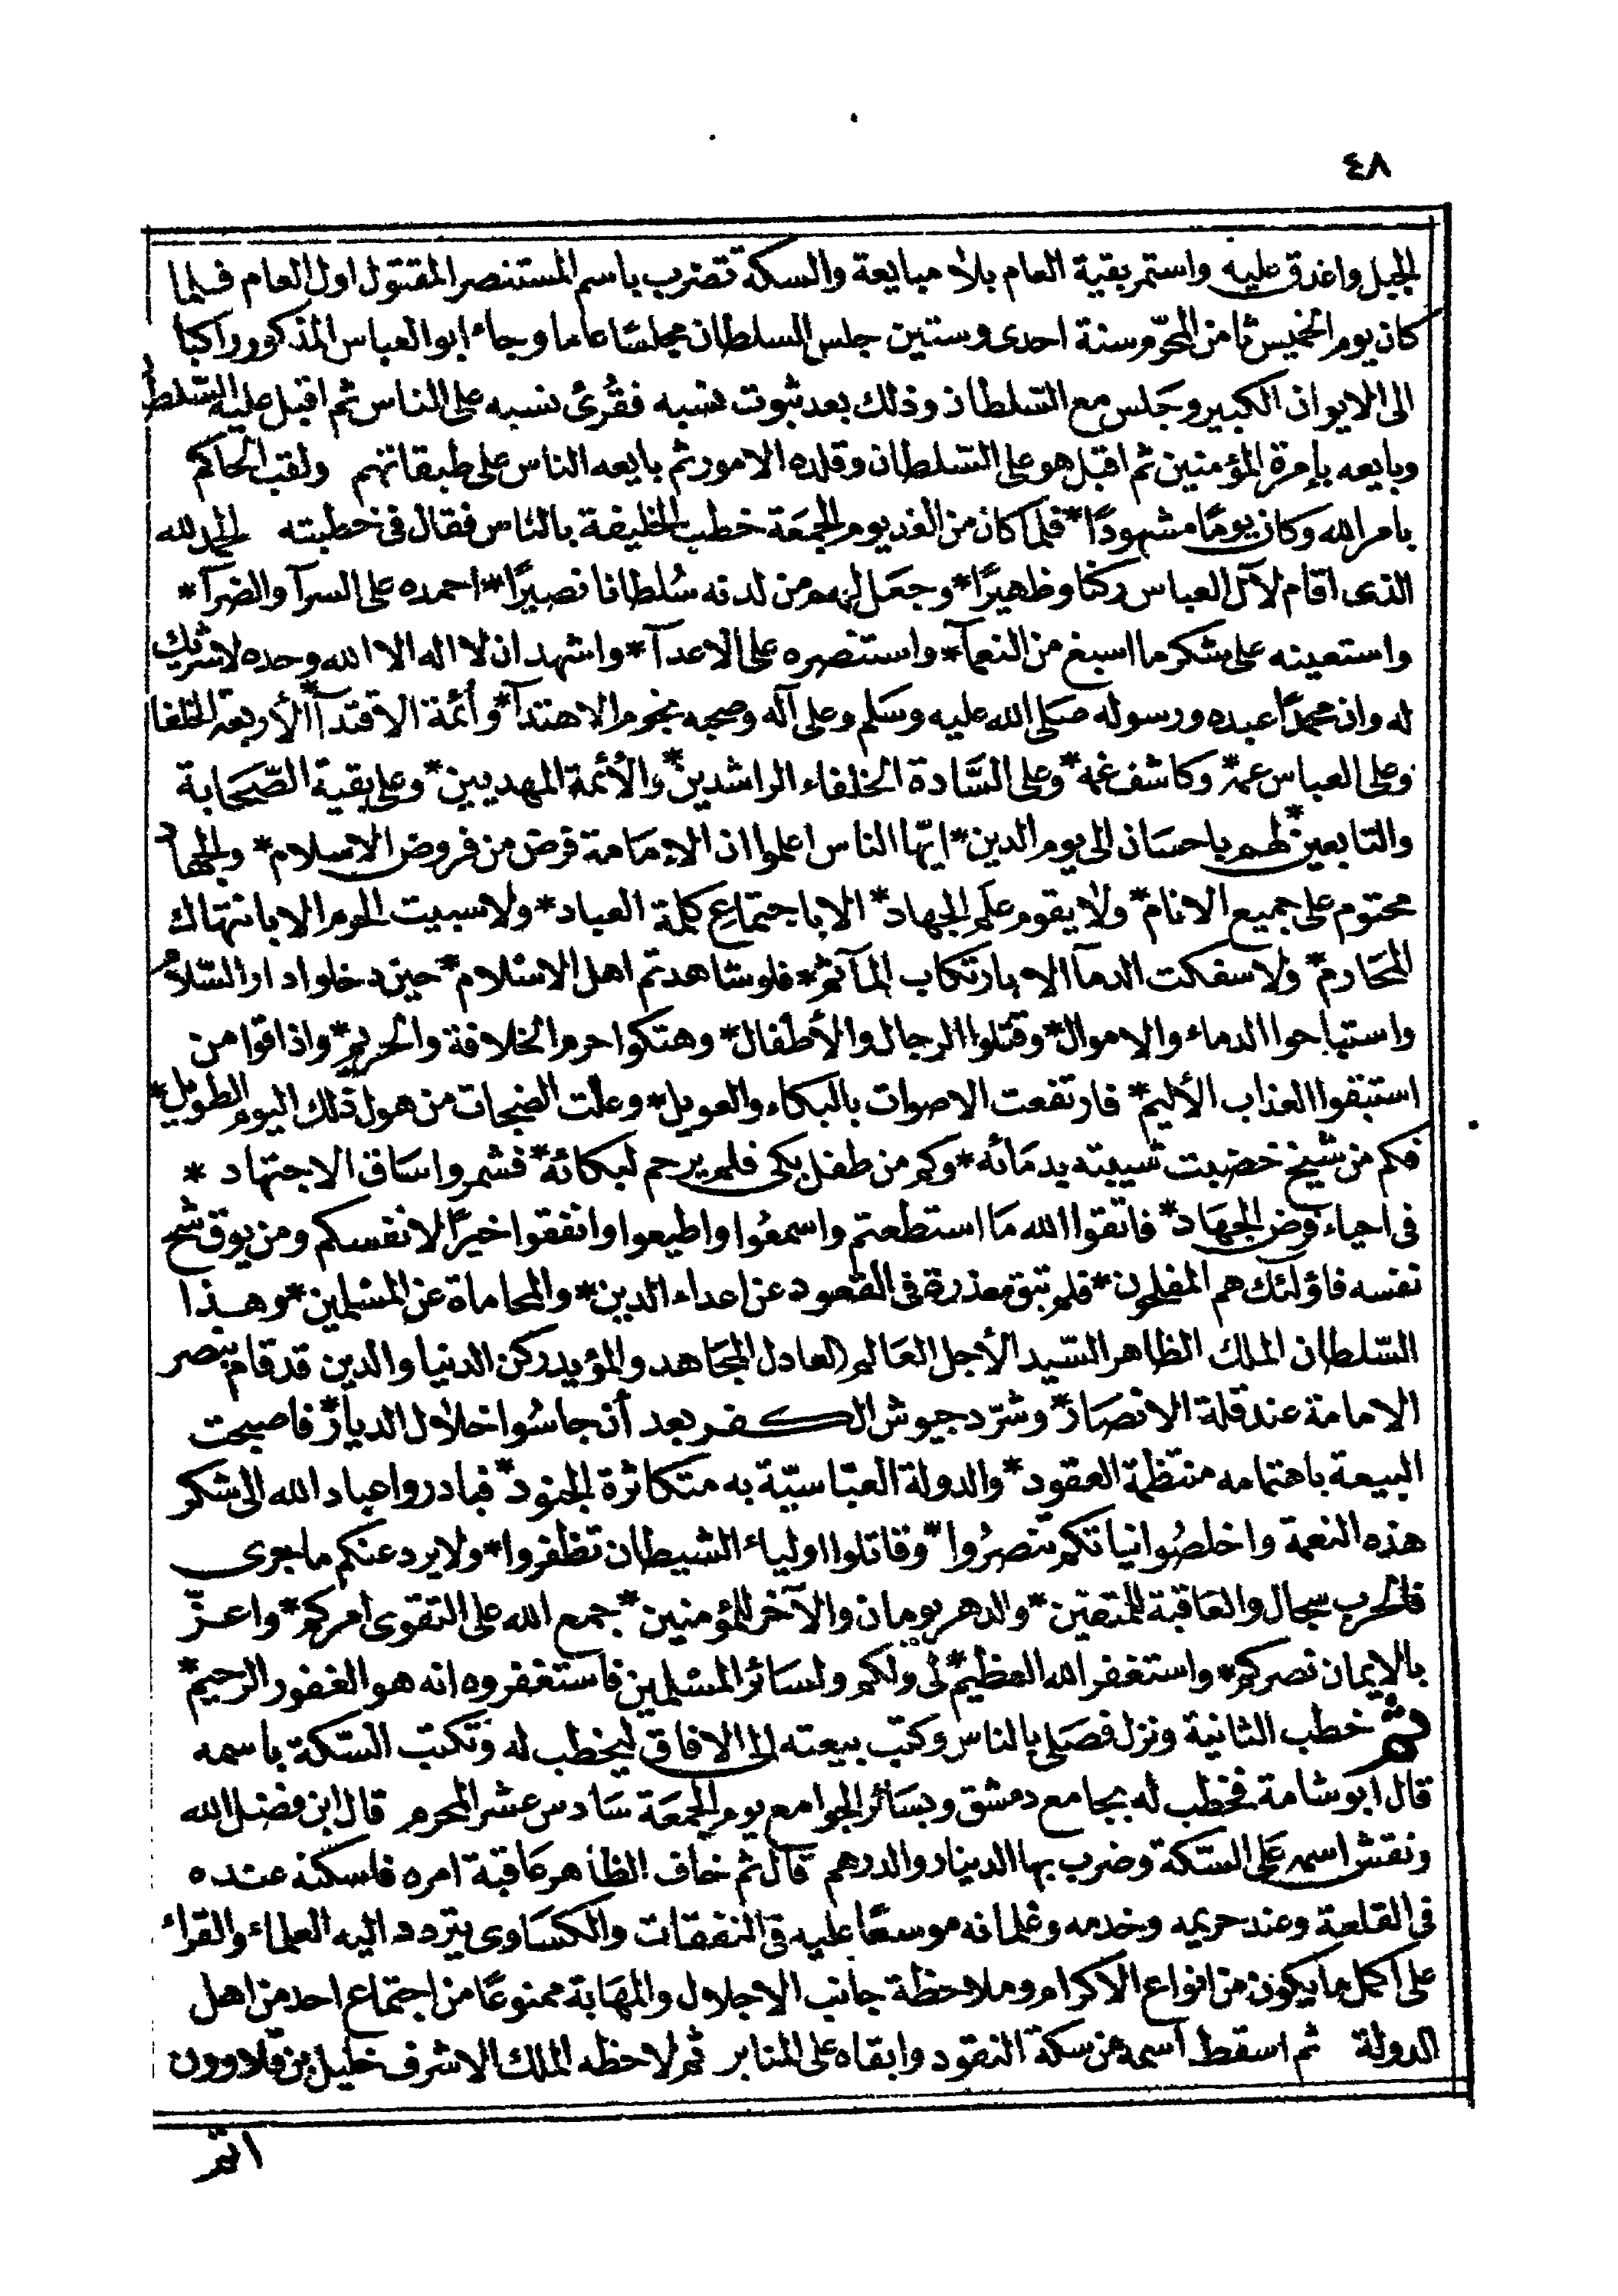 ٤٨
الجبل واغدق عليه واستمر بقية العام بلا مبايعة والسكة تضرب باسم المستنصر المقتول اول العام فلما
كان يوم الخميس ثامن المحرّم سنة احدى وستين جلس السلطان مجلسًا عاما وجاء ابو العباس المذكور راكبا
الى الايوان الكبير وجَلس مع السّلطان وذلك بعد ثبوت نسبه فقُرئ نسبه على الناس ثم اقبل عليه السّلطان
وبايعه بإمرة المؤمنين ثم اقبل هو على السّلطان وقلده الامور ثم بايعه الناس على طبقاتهم ولقب الحاكم
بامر الله وكان يومًا مشهودًا * فلما كان من الغد يوم الجمعَة خطب الخليفة بالنّاس فقال فى خطبته الحمد لله
الذى اقام لآل العباس ركنا وظهيرًا * وجعَل لهم من لدنه سُلطانا نصيرًا * احمده على السرآ والضرآ *
واستعينه على شكر ما اسبغ من النعمآ * واستنصره على الاعدآ * واشهد ان لا اله الا الله وحده لا شريك
له وان محمدًا عبده ورسوله صَلى الله عليه وسَلم وعلى آله وصحبه نجوم الاهتدآ * وأئمّة الاقتدآ * الأربعة الخلفا
وعلى العباس عمه * وكاشف غمه * وعلى السَّادة الخلفاء الراشدين * والأئمة المهديين * وعلى بقية الصّحَابة
والتابعين * لهم باحسَان الى يوم الدين * ايّها الناس اعلموا ان الإمَامة فرض من فروض الاسلام * والجهاد
محتوم على جميع الانام * ولا يقوم علَم الجهاد * الا باجتماع كلمة العباد * ولا سبيت الحرم الا بانتهاك
المحَارم * ولا سفكت الدمآ الا بارتكاب المآثم * فلو شاهدتم اهل الاسْلام * حين دخلوا دار السّلام
واستباحوا الدماء والاموال * وقتلوا الرجال والأطفال * وهتكوا حرم الخلافة والحريم * واذاقوا من
استبقوا العذاب الأليم * فارتفعت الاصوات بالبكاء والعويل * وعلت الضجات من هول ذلك اليوم الطويل *
فكم من شيخ خضبت شيبته بدمَائه * وكم من طفل بكى فلم يرحم لبكائه * فشمروا سَاق الاجتهاد *
فى احياء فرض الجهَاد * فاتقوا الله مَا استطعتم واسمعُوا واطيعوا وانفقوا خيرًا لانفسكم ومن يوق شح
نفسه فاؤلئك هم المفلحون * فلم تبق معذرة فى القعود عن اعداء الدين * والمحاماة عن المسْلمين * وهذا
السّلطان الملك الظاهر السّيد الأجل العَالم العادل المجَاهد والمؤيد ركن الدنيا والدين قد قام بنصر
الامامة عند قلة الانصَار * وشرّد جيوش الكفر بعد أن جاسُوا خلال الديار * فاصبحت
البيعة باهتمامه منتظمة العقود * والدولة العبّاسيّة به متكاثرة الجنود * فبادروا عباد الله الى شكر
هذه النعمة واخلصُوا نياتكم تنصرُوا * وقاتلوا اولياء الشيطان تظفروا * ولا يردعنكم ما جرى
فالحرب سجال والعَاقبة للمتقين * والدهر يومان والآخر للمؤمنين * جمع الله على التقوى امركم * واعزّ
بالإيمان نصركم * واستغفر الله العظيم * لى ولكم ولسَائر المسْلمين فاستغفروه انه هو الغفور الرحيم *
ثم خطب الثانية ونزل فصَلى بالناس وكتب ببيعته الى الافاق ليخطب له وتكتب السّكة باسمه
قال ابو شامة فخطب له بجامع دمشق وبسَائر الجوامع يوم الجمعَة سَادس عشر المحرم قال ابن فضل الله
ونقش اسمه عَلى السّكة وضرب بها الدينار والدرهم قال ثم خاف الظاهر عَاقبة امره فاسكنه عنده
فى القلعة وعند حريمه وخدمه وغلمانه موسعًا عليه فى النفقات والكسَاوى يتردد اليه العلماء والقراء
على اكمل ما يكون من انواع الاكرام وملاحظة جانب الاجلال والمهَابة ممنوعًا من اجتماع احد من اهل
الدولة ثم اسقط اسمه من سكة النقود وابقاه على المنابر ثم لاحظه الملك الاشرف خليل بن قلاوون
اتم